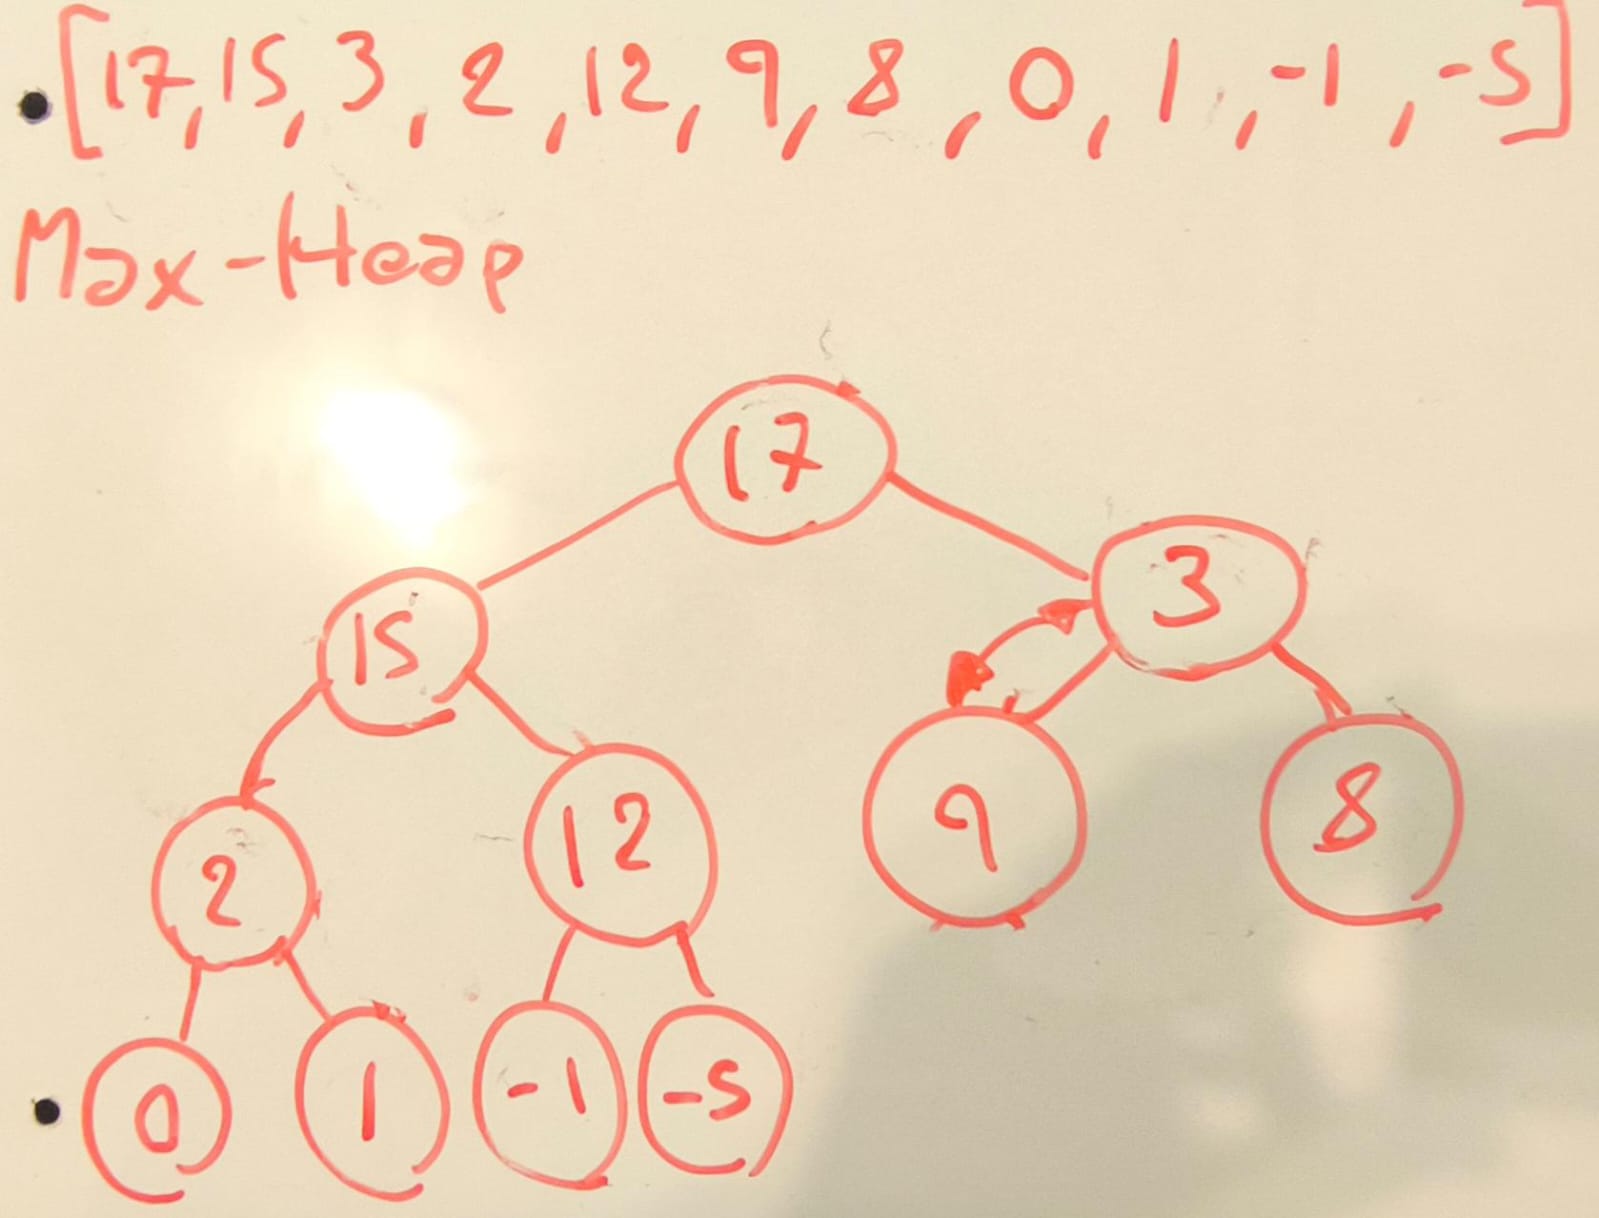 [17, 15, 3, 2, 12, 9, 8, 0, 1, -1, -5]
Max-Heap
17
15 3
2 12 9 8
0 1 -1 -5